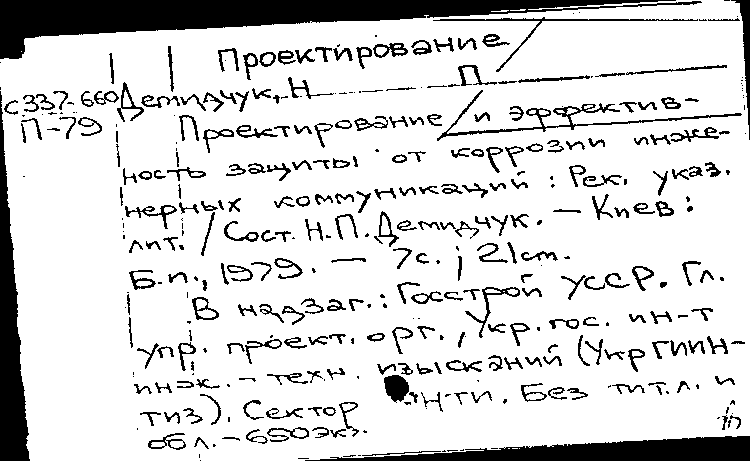 Проектирование /
с337-660 Демидчук, Н П
П-79 Проектирование / и эффектив-
ность защиты от коррозии инже-
нерных коммуникаций : Рек. указ.
лит. / Сост. Н.П. Демидчук. — Киев :
Б.и., 1979. — 7с. ; 21см.
В надзаг.: Госстрой УССР. Гл.
упр. проект. орг., Укр. гос. ин-т
инж.-техн. изысканий (УкрГИИН-
ТИЗ). Сектор НТИ. Без тит. л. и
обл. - 650экз.